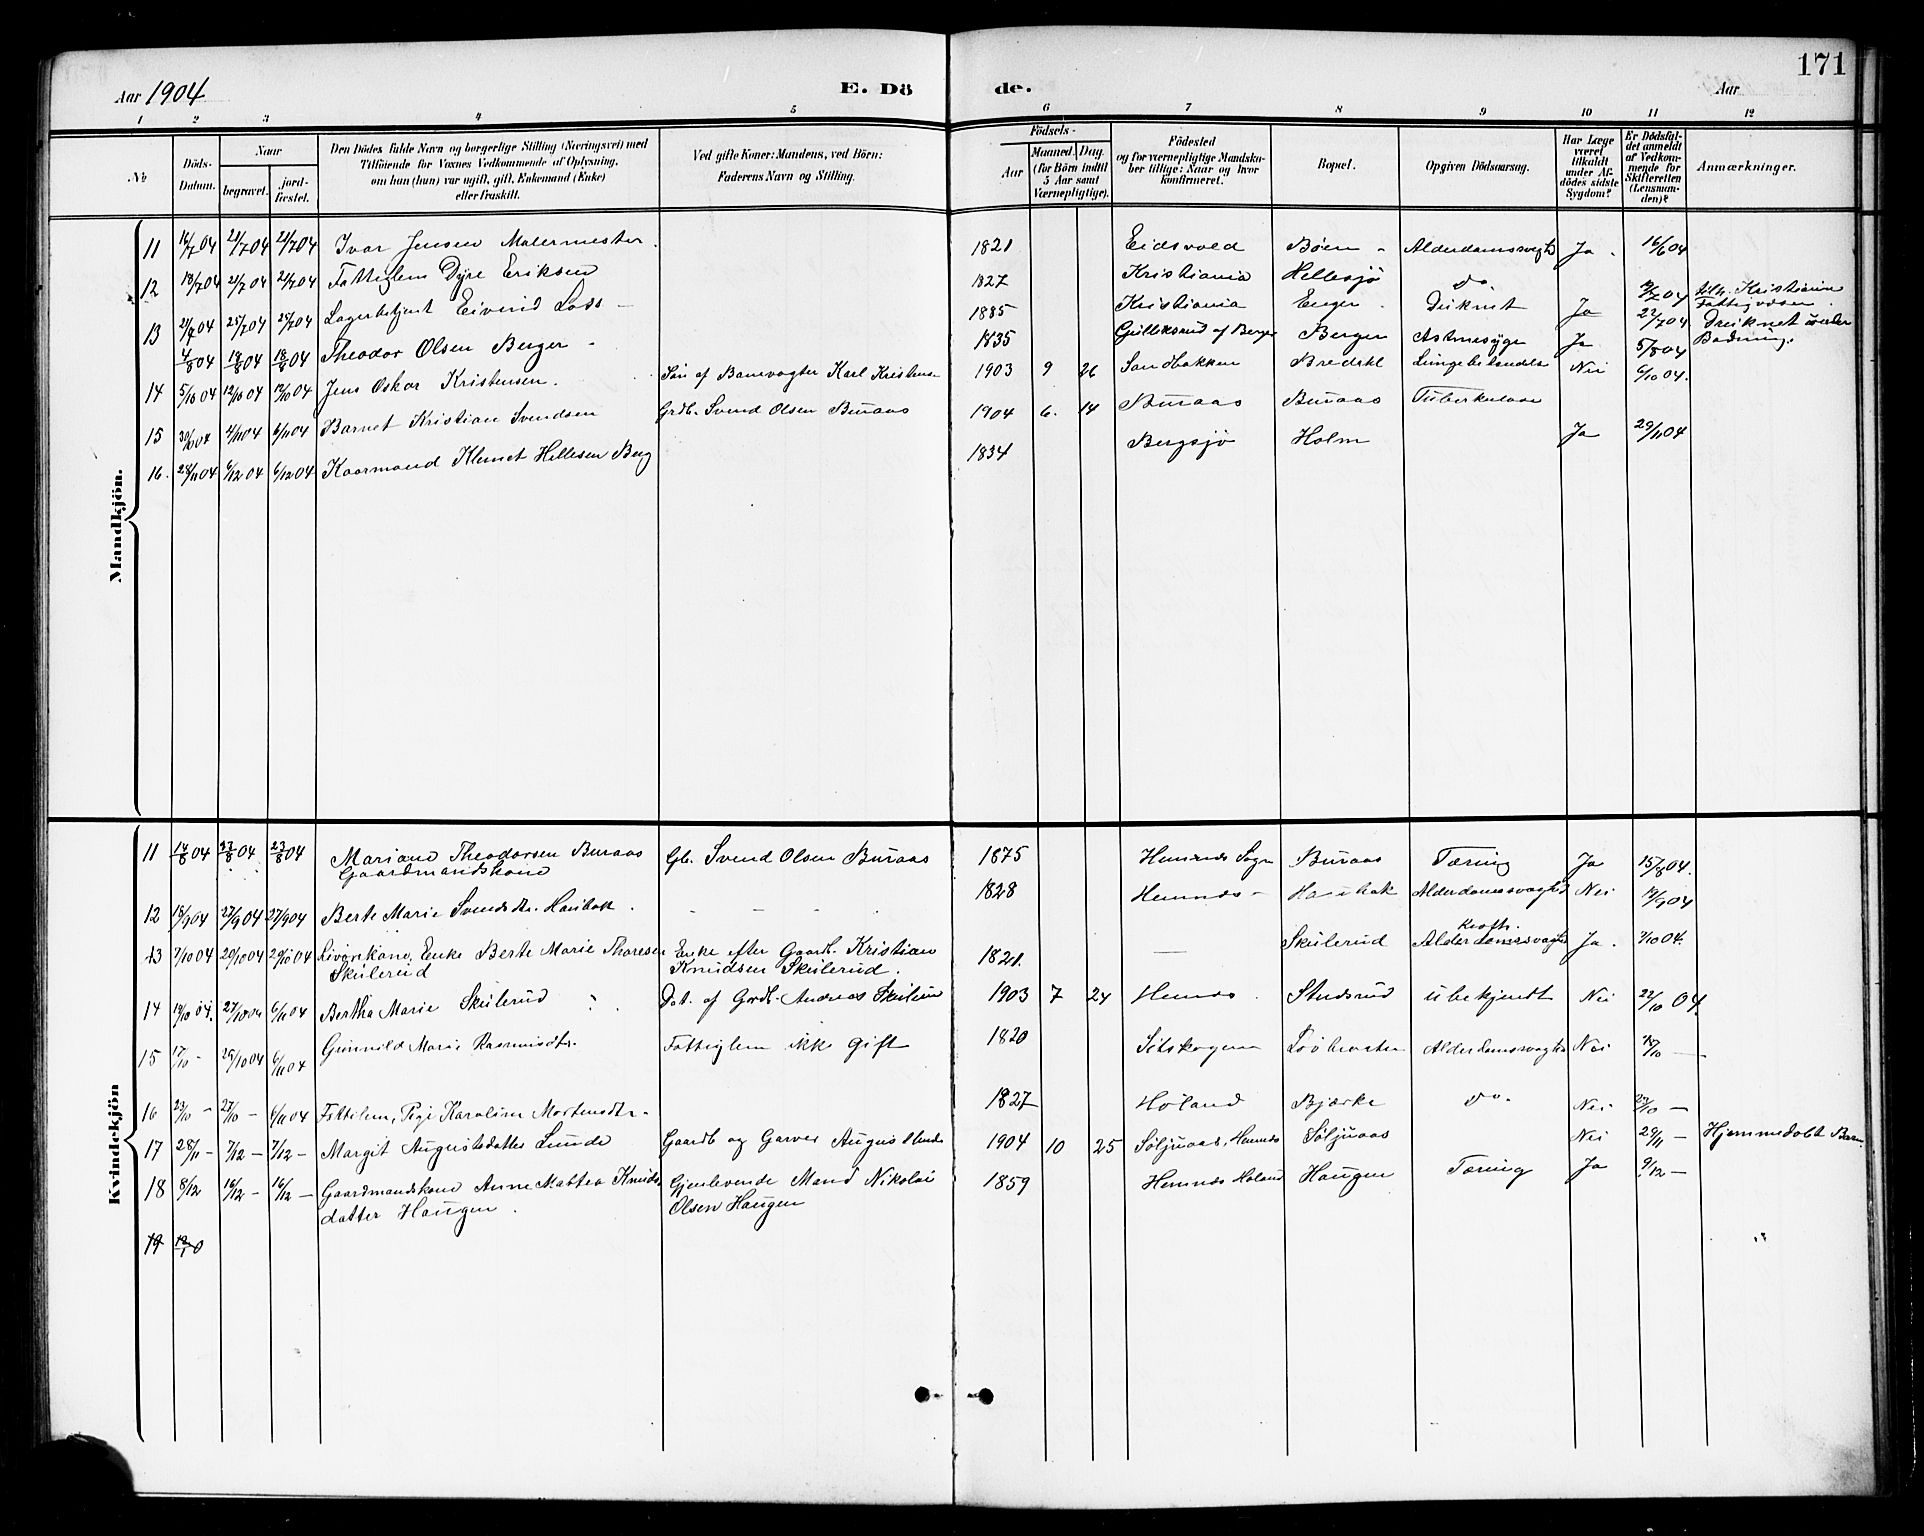 171
Aar 1904
E. Dö
de.
Aar
1 2 3 4 5 6 7 8 9 10 11 12
№
Döds-Datum.
Naar
begravet.
jord-fæstet.
Den Dödes fulde Navn og borgerlige Stilling (Næringsvei) med
Tilföiende for Voxnes Vedkommende af Oplysning,
om han (hun) var ugift, gift, Enkemand (Enke)
eller fraskilt.
Ved gifte Koner: Mandens, ved Börn:
Faderens Navn og Stilling.
Födsels-
Aar
Maaned.
Dag.
(for Börn indtil
5 Aar samt
Værnepligtige).
Födested
og for værnepligtige Mandska-
ber tillige: Naar og hvor
konfirmeret.
Bopæl.
Opgiven Dödsaarsag.
Har Læge
været
tilkaldt
under Af-
dödes sidste
Sygdom?
Er Dödsfal-
det anmeldt
af Vedkom-
mende for
Skifteretten
(Lensman-
den)?
Anmærkninger.
Mandkjön.
11 16/7 04 21/7 04 21/7 04 Ivar Jensen Malermester. 1821 Eidsvold Böen Alderdomssvagh Ja. 16/6 04
12 18/7 04 21/7 04 21/7 04 Fattiglem Dyre Eriksen 1827 Kristiania Hellesjö do. 04 Kristiania Fattigvæsen.
13 21/7 04 25/7 04 25/7 04 Lagerbetjent Eivind Loss 1885 Kristiania Enger Druknet Ja 22/7 04 Druknet under Badning.
4/8 04 18/8 04 18/8 04 Theodor Olsen Berger 1835 Gulliksrud af Berger Bergen Astmasyge Ja 5/8 04
14 5/10 04 12/10 04 12/10 04 Jens Oskar Kristensen. Sön af Banevogter Karl Kristens 1903 9 26 Sandbakken Bredekl Lungebetændels Nei 6/10 04.
15 30/10 04 4/11 04 6/11 04 Barnet Kristian Svendsen Grdb. Svend Olsen Buraas 1904 6. 14 Buraas Buraas Tuberkulose
16. 28/11 04 6/12 04 6/12 04 Kaarmand Klemet Hellesen Berg 1834 Bergsjö Holm Ja 29/11 04
Kvindekjön
11 14/8 04 23/8 04 23/8 04 Mariane Theodorsen Buraas Gb. Svend Olsen Buraas 1875 Hemnes Sogn Buraas Tæring Ja 15/8 04.
Gaardmandskone
12 18/9 04 27/9 04 27/9 04 Berte Marie Svendsdtr. Haubak. - - - 1828 Hemnes - Haubak Alderdomssvaghed Nei 19/9 04
13 7/10 04 20/10 04 20/10 04 Enke Berte Marie Thoresen Enke efter Gaardb. Kristian 1821. — Skulerud Alderdomssvaghed Ja. 7/10 04.
Skulerud Knudsen Skulerud.
14 19/10 04. 27/10 04 6/11 04 Bertha Marie Skulerud Dat. af Grdb. Andreas Skulerud 1903 7 24 Hemnes. Studsrud ubekjendt Nei 22/10 04.
15 17/10 - 29/10 04 6/11 04 Gunnild Marie Rasmusdtr. Fattiglem ikke gift 1820 Setskogen Alderdomssvaghed Nei —
16 23/10 - 27/10 - 6/11 04 Fattilem, Pige Karoline Mortensdtr. 1827 Höland Bjærke do. Nei 27/10 —
17 28/11 - 7/12 - 7/12 - Margit Augustsdatter Lunde Gaardb og Garver August Lunde 1904 10 25 Söljuaas, Hemnes Söljuaas Nei 29/11 — Hjemmedöbt Barn
18 8/12 16/12 - 16/12 - Gaardmandskone Anne Mathea Knuds Gjenlevende Mand Nikolai 1859 Hemnes Höland Haugen Tæring Ja 9/12 —
datter Haugen. Olsen Haugen
19